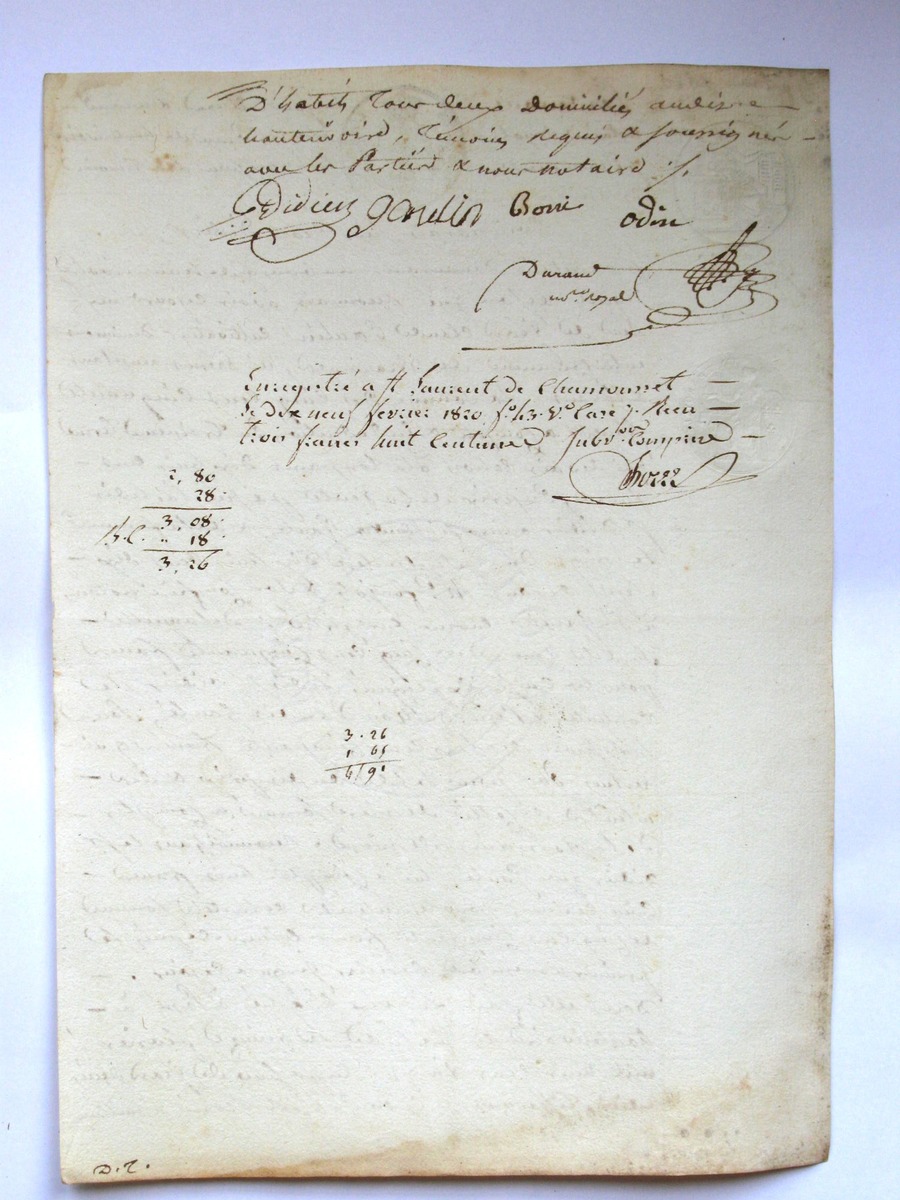 D'habits, Tous deux Domiciliés audit
hautevoire, Témoins requis & soussignés
avec les Parties & nous notaire ./.
Didier Gaudin Borri Odin
Durand
not.re royal
Enregistré a St Laurent de Chamousset
Le dix neuf fevrier 1820 fo 43 Vo Case 7. Recu
trois francs huit Centimes Subvon Comprise
2, 80
28
3, 08
18
3, 26
3. 26
1 65
4, 91
D. T.